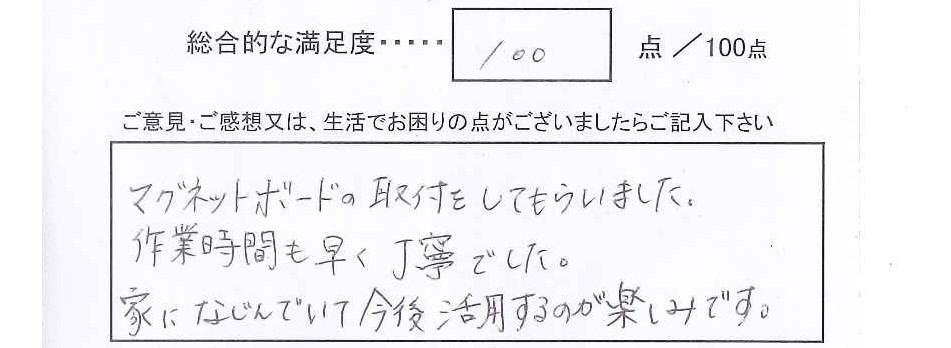 総合的な満足度‥‥‥ 100 点 ／100点
ご意見・ご感想又は、生活でお困りの点がございましたらご記入下さい
マグネットボードの取付をしてもらいました。
作業時間も早く丁寧でした。
家になじんでいて今後活用するのが楽しみです。